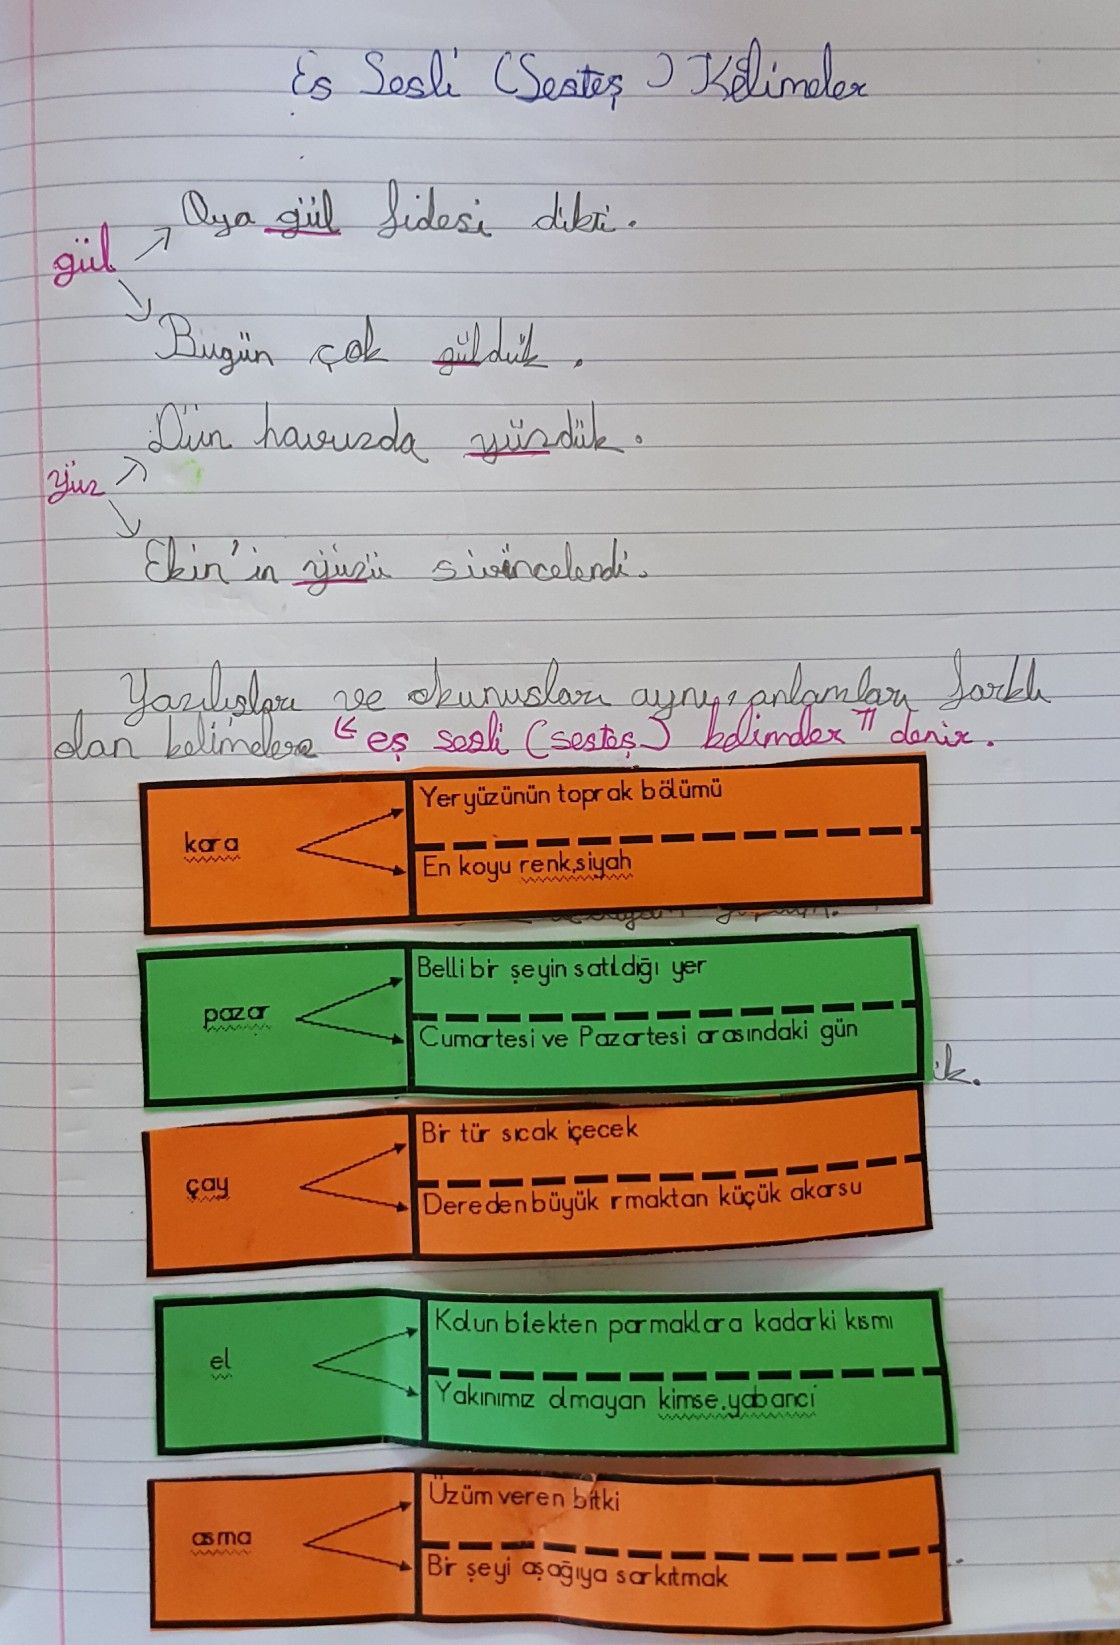 Eş Sesli (Sesteş) Kelimeler
Oya gül fidesi dikti.
gül
Bugün çok güldük.
Dün havuzda yüzdük.
yüz
Ekin'in yüzü sivincelendi.
Yazılışları ve okunuşları aynı, anlamları farklı
olan kelimelere "eş sesli (sesteş) kelimeler" denir.
Yeryüzünün toprak bölümü
kara
En koyu renk,siyah
Belli bir şeyin satıldığı yer
pazar
Cumartesi ve Pazartesi arasındaki gün
ik.
Bir tür sıcak içecek
çay
Dereden büyük ırmaktan küçük akarsu
Kolun bilekten parmaklara kadarki kısmı
el
Yakınımız olmayan kimse,yabancı
Üzüm veren bitki
asma
Bir şeyi aşağıya sarkıtmak